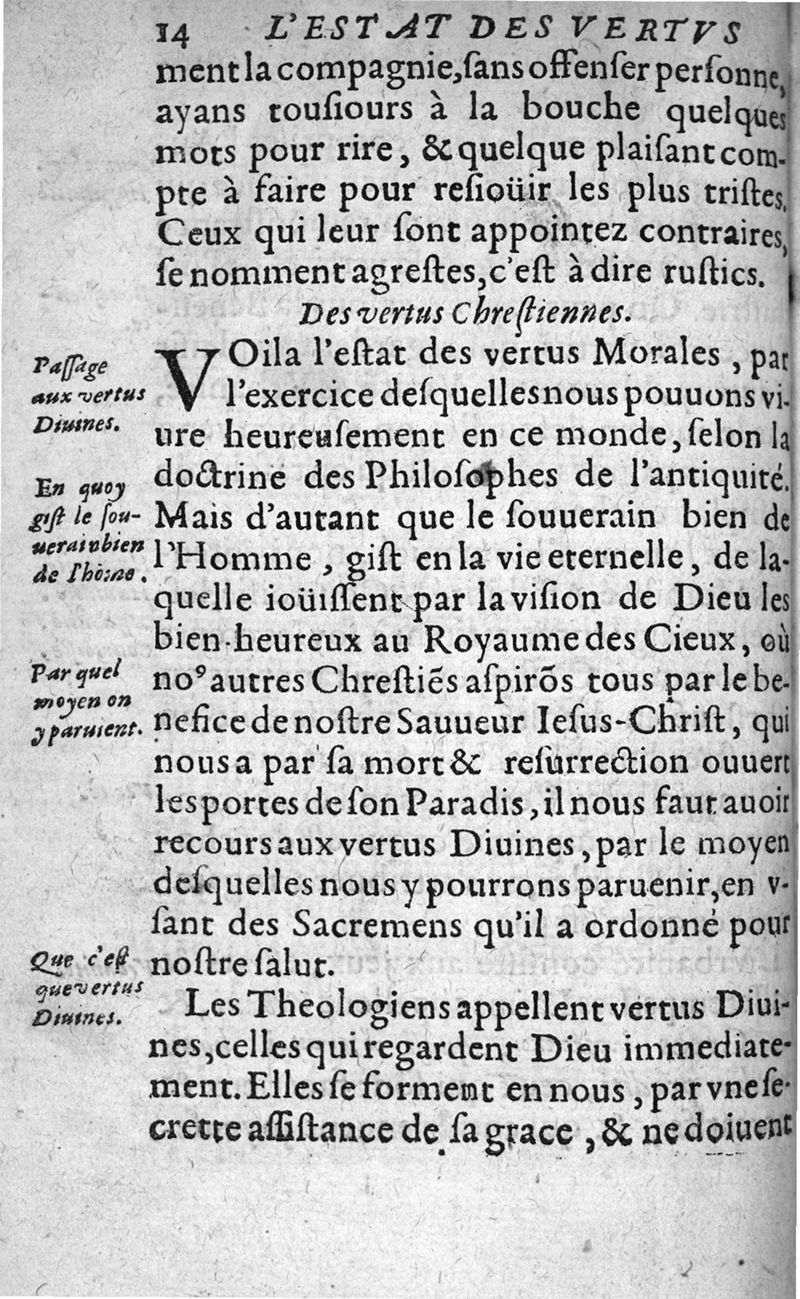 14 L'ESTAT DES VERTVS
ment la compagnie, ſans offenſer perſonne,
ayans touſiours à la bouche quelques
mots pour rire, & quelque plaiſant com-
pte à faire pour reſioüir les plus triſtes.
Ceux qui leur ſont appointez contraires,
ſe nomment agreſtes, c'eſt à dire ruſtics.
Des vertus Chreſtiennes.
Paſſage
aux vertus
Diuines.
VOila l'eſtat des vertus Morales, par
l'exercice deſquelles nous pouuons vi-
ure heureuſement en ce monde, ſelon la
doctrine des Philoſophes de l'antiquité.
En quoy
giſt le ſou-
uerain bien
de l'hõme.
Mais d'autant que le ſouuerain bien de
l'Homme, giſt en la vie eternelle, de la-
quelle ioüiſſent par la viſion de Dieu les
bien-heureux au Royaume des Cieux, où
Par quel
moyen on
y paruient.
noꝰ autres Chreſtiẽs aſpirõs tous par le be-
nefice de noſtre Sauueur Ieſus-Chriſt, qui
nous a par ſa mort & reſurrection ouuert
les portes de ſon Paradis, il nous faut auoir
recours aux vertus Diuines, par le moyen
deſquelles nous y pourrons paruenir, en v-
ſant des Sacremens qu'il a ordonné pour
noſtre ſalut.
Que c'eſt
que vertus
Diuines.
Les Theologiens appellent vertus Diui-
nes, celles qui regardent Dieu immediate-
ment. Elles ſe forment en nous, par vne ſe-
crette aſſiſtance de ſa grace, & ne doiuent